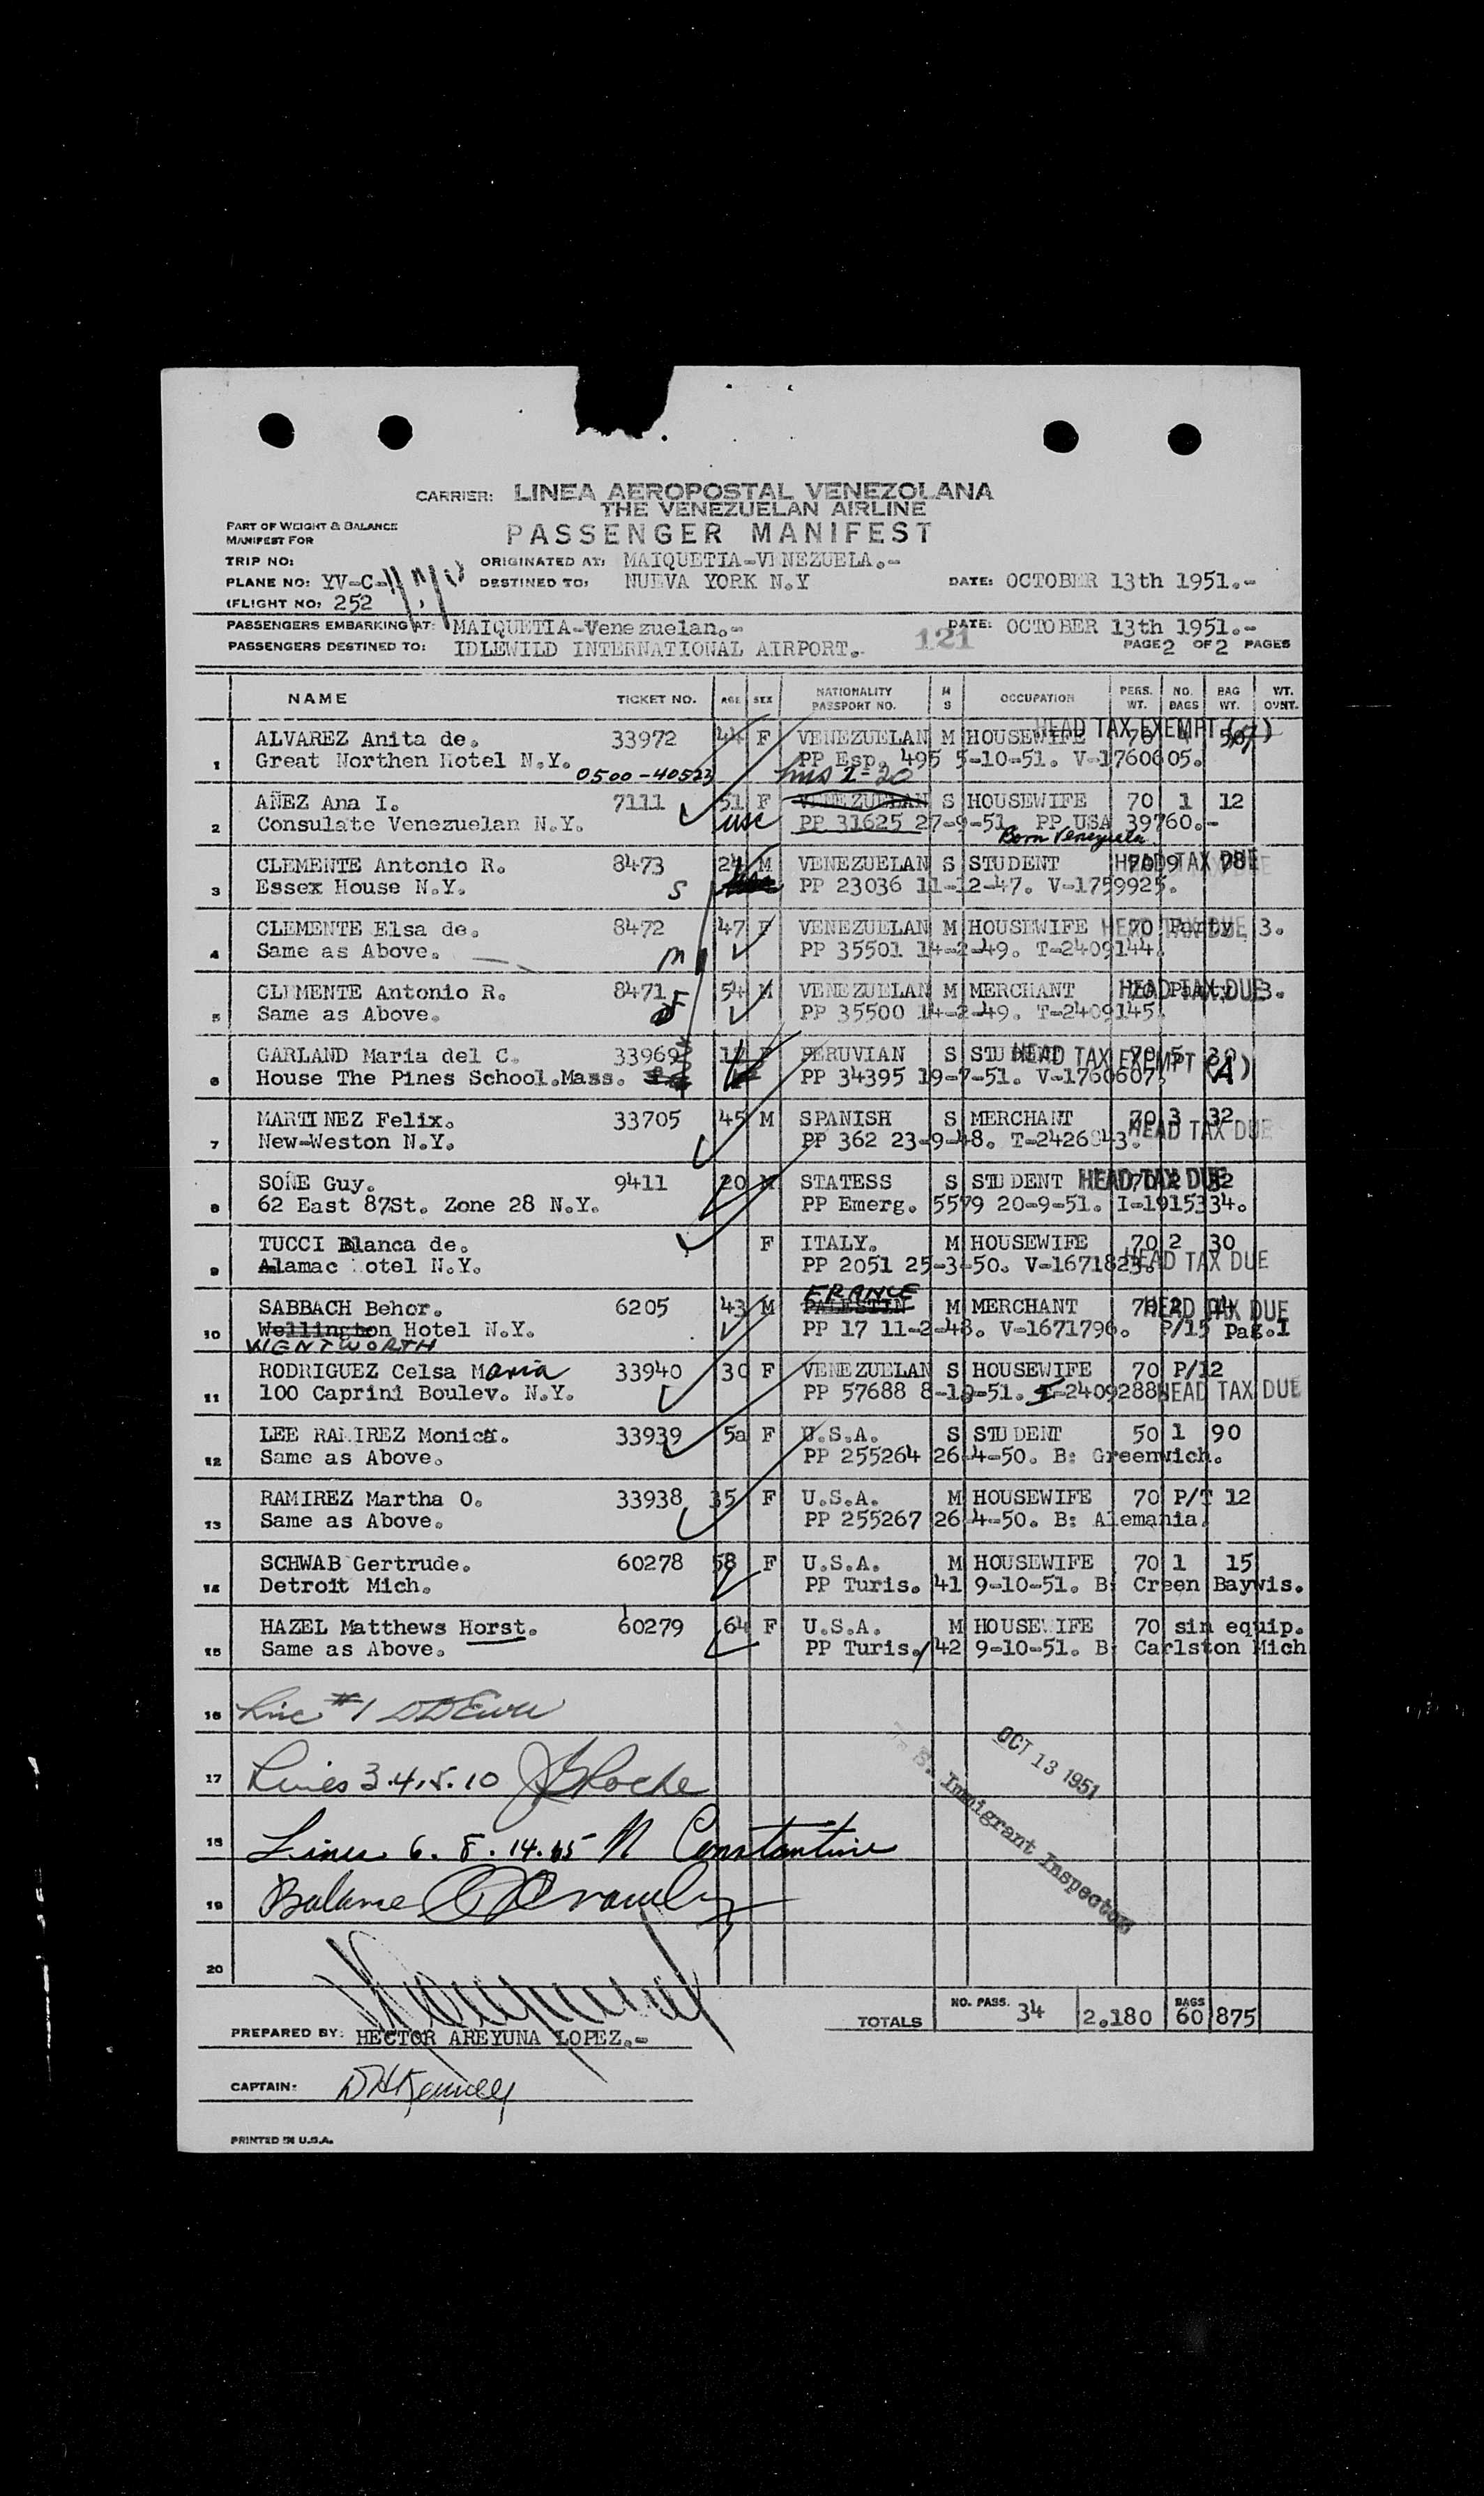 CARRIER: LINEA AEROPOSTAL VENEZOLANA
THE VENEZUELAN AIRLINE
PART OF WEIGHT & BALANCE
MANIFEST FOR
PASSENGER MANIFEST
TRIP NO: ORIGINATED AT: MAIQUETIA-VENEZUELA.-
PLANE NO: YV-C- DESTINED TO: NUEVA YORK N.Y DATE: OCTOBER 13th 1951.-
(FLIGHT NO: 252
PASSENGERS EMBARKING AT: MAIQUETIA-Venezuelan.- DATE: OCTOBER 13th 1951.-
PASSENGERS DESTINED TO: IDLEWILD INTERNATIONAL AIRPORT.- 121 PAGE 2 OF 2 PAGES
NAME TICKET NO. AGE SEX NATIONALITY PASSPORT NO. M S OCCUPATION PERS. WT. NO. BAGS BAG WT. WT. OVNT.
HEAD TAX EXEMPT
1 ALVAREZ Anita de. 33972 44 F VENEZUELAN M HOUSEWIFE 70
Great Northen Hotel N.Y. PP Esp. 495 5-10-51. V-1760605.
0500-40523
2 AÑEZ Ana I. 7111 51 F VENEZUELAN S HOUSEWIFE 70 1 12
Consulate Venezuelan N.Y. usc PP 31625 27-9-51. PP USA 39760.-
Born Venezuela
3 CLEMENTE Antonio R. 8473 24 M VENEZUELAN S STUDENT 70 9 78 HEAD TAX DUE
Essex House N.Y. S PP 23036 11-12-47. V-1759925.
4 CLEMENTE Elsa de. 8472 47 F VENEZUELAN M HOUSEWIFE 70 Party 3. HEAD TAX DUE
Same as Above. M PP 35501 14-2-49. T-2409144.
5 CLEMENTE Antonio R. 8471 54 M VENEZUELAN M MERCHANT 70 Party 3. HEAD TAX DUE
Same as Above. F PP 35500 14-2-49. T-2409145.
6 GARLAND Maria del C. 33969 F PERUVIAN S STUDENT 70 5 30 HEAD TAX EXEMPT (A)
House The Pines School.Mass. PP 34395 19-7-51. V-1760607.
7 MARTINEZ Felix. 33705 45 M SPANISH S MERCHANT 70 3 32
New-Weston N.Y. PP 362 23-9-48. HEAD TAX DUE
8 SOÑE Guy. 9411 20 M STATESS S STUDENT 70 2 32 HEAD TAX DUE
62 East 87St. Zone 28 N.Y. PP Emerg. 5579 20-9-51. I-1915334.
9 TUCCI Blanca de. F ITALY. M HOUSEWIFE 70 2 30
Alamac Hotel N.Y. PP 2051 25-3-50. V-1671823. HEAD TAX DUE
FRANCE
10 SABBACH Behor. 6205 43 M PALESTIN M MERCHANT 70 2 14 HEAD TAX DUE
Wellington Hotel N.Y. PP 17 11-2-48. V-1671796. P/15 pag.1
WENTWORTH
11 RODRIGUEZ Celsa Maria 33940 30 F VENEZUELAN S HOUSEWIFE 70 P/12
100 Caprini Boulev. N.Y. PP 57688 8-10-51. I-2409288 HEAD TAX DUE
12 LEE RAMIREZ Monica. 33939 5a F U.S.A. S STUDENT 50 1 90
Same as Above. PP 255264 26-4-50. B: Greenwich.
13 RAMIREZ Martha O. 33938 35 F U.S.A. M HOUSEWIFE 70 P/T 12
Same as Above. PP 255267 26-4-50. B: Alemania.
14 SCHWAB Gertrude. 60278 58 F U.S.A. M HOUSEWIFE 70 1 15
Detroit Mich. PP Turis. 41 9-10-51. B: Creen Baywis.
15 HAZEL Matthews Horst. 60279 64 F U.S.A. M HOUSEWIFE 70 sin equip.
Same as Above. PP Turis. 42 9-10-51. B: Carlston Mich
16 Line #1
17 Lines 3.4.5.10 JGRoche
18 Lines 6. 8. 14. 15 N Constantine
19 Balance
20
OCT 13 1951
Immigrant Inspector
TOTALS NO. PASS. 34 2.180 BAGS 60 875
PREPARED BY: HECTOR AREYUNA LOPEZ.-
CAPTAIN:
PRINTED IN U.S.A.